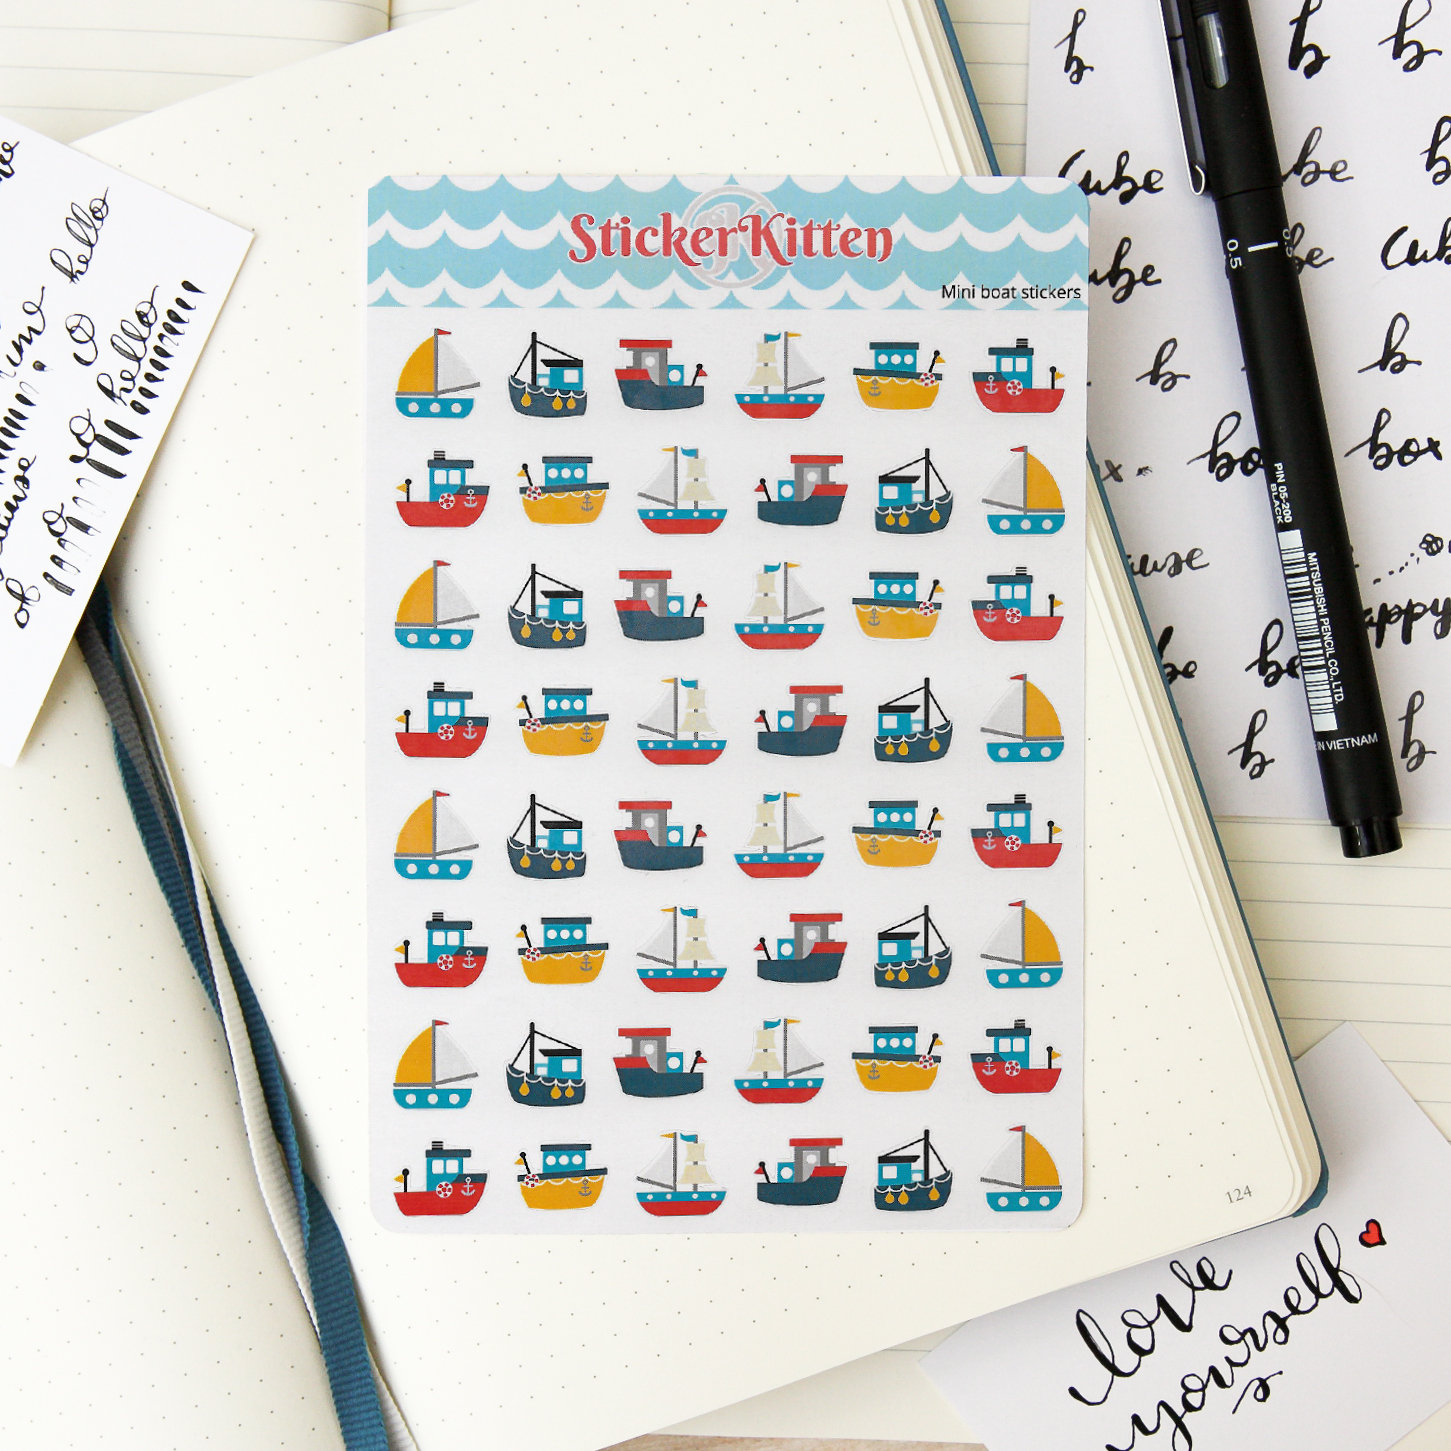 StickerKitten
Mini boat stickers
hello
hello
b
b
b
cube
cube
b
cube
cube
cube
cub
b
b
b
box
box
happy
b
b
b
0.5
PIN 05-200
BLACK
MITSUBISHI PENCIL CO., LTD.
IN VIETNAM
124
love
yourself